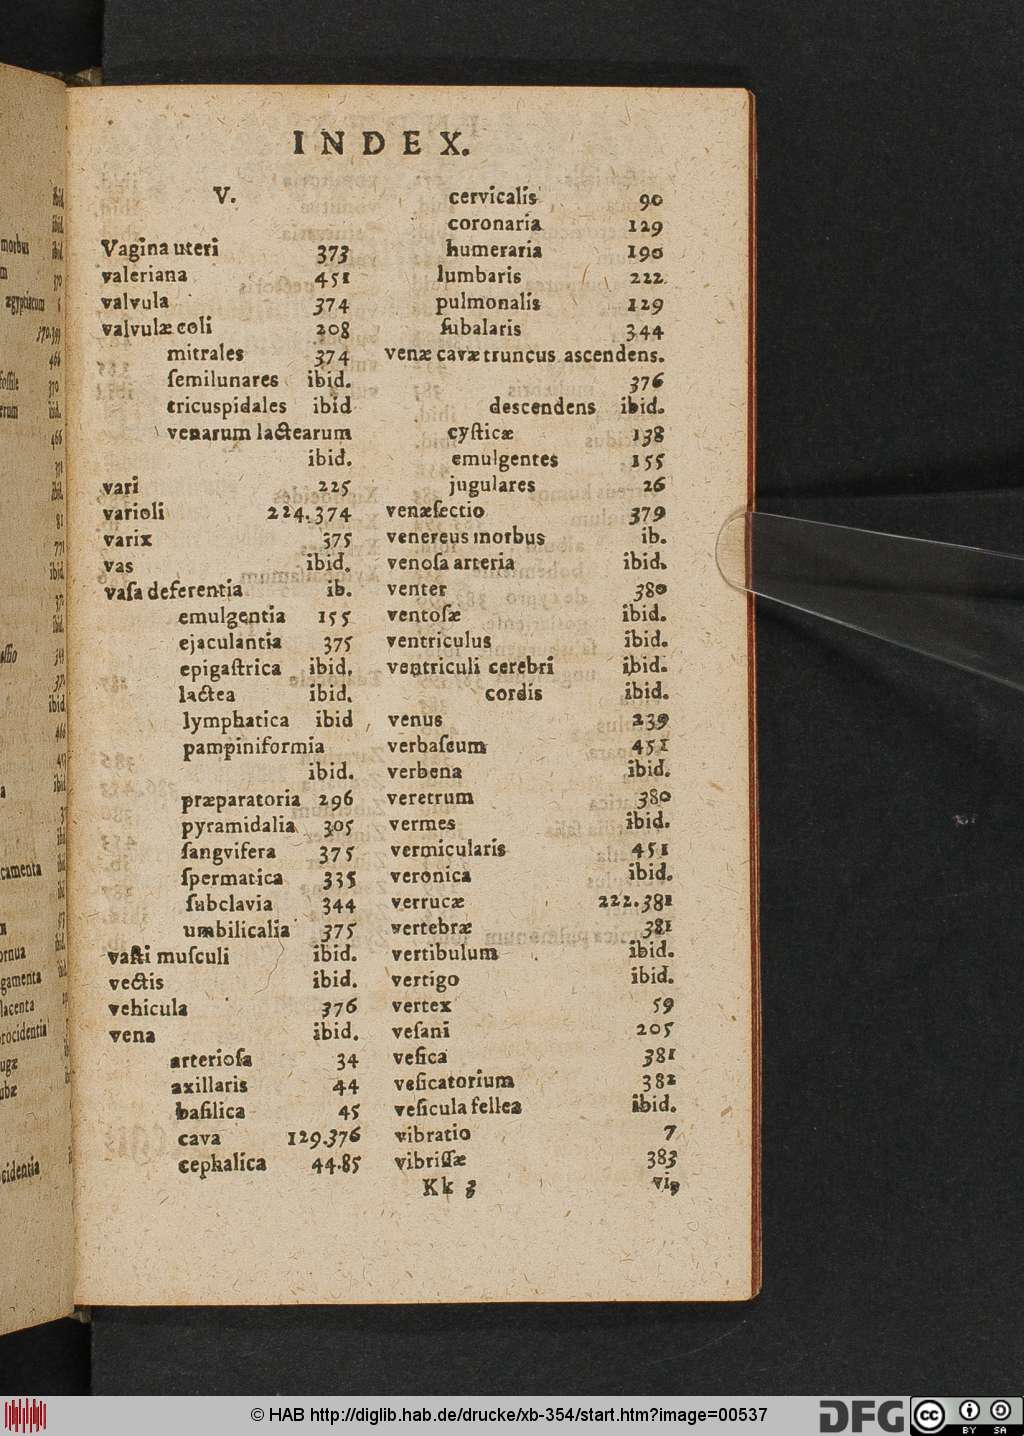 INDEX.
V.
Vagina uteri 373
valeriana 451
valvula 374
valvulæ coli 208
mitrales 374
ſemilunares ibid.
tricuspidales ibid
venarum lactearum
ibid.
vari 225
varioli 224.374
varix 375
vas ibid.
vaſa deferentia ib.
emulgentia 155
ejaculantia 375
epigaſtrica ibid.
lactea ibid.
lymphatica ibid
pampiniformia
ibid.
præparatoria 296
pyramidalia 305
ſangvifera 375
ſpermatica 335
ſubclavia 344
umbilicalia 375
vaſti muſculi ibid.
vectis ibid.
vehicula 376
vena ibid.
arterioſa 34
axillaris 44
baſilica 45
cava 129.376
cephalica 44.85
cervicalis 90
coronaria 129
humeraria 190
lumbaris 222
pulmonalis 129
ſubalaris 344
venæ cavæ truncus ascendens.
376
descendens ibid.
cyſticæ 138
emulgentes 155
jugulares 26
venæſectio 379
venereus morbus ib.
venoſa arteria ibid.
venter 380
ventoſæ ibid.
ventriculus ibid.
ventriculi cerebri ibid.
cordis ibid.
venus 239
verbaſcum 451
verbena ibid.
veretrum 380
vermes ibid.
vermicularis 451
veronica ibid.
verrucæ 222.381
vertebræ 381
vertibulum ibid.
vertigo ibid.
vertex 59
veſani 205
veſica 381
veſicatorium 382
veſicula fellea ibid.
vibratio 7
vibriſſæ 383
Kk 3 vi,
© HAB http://diglib.hab.de/drucke/xb-354/start.htm?image=00537
DFG
cc BY SA